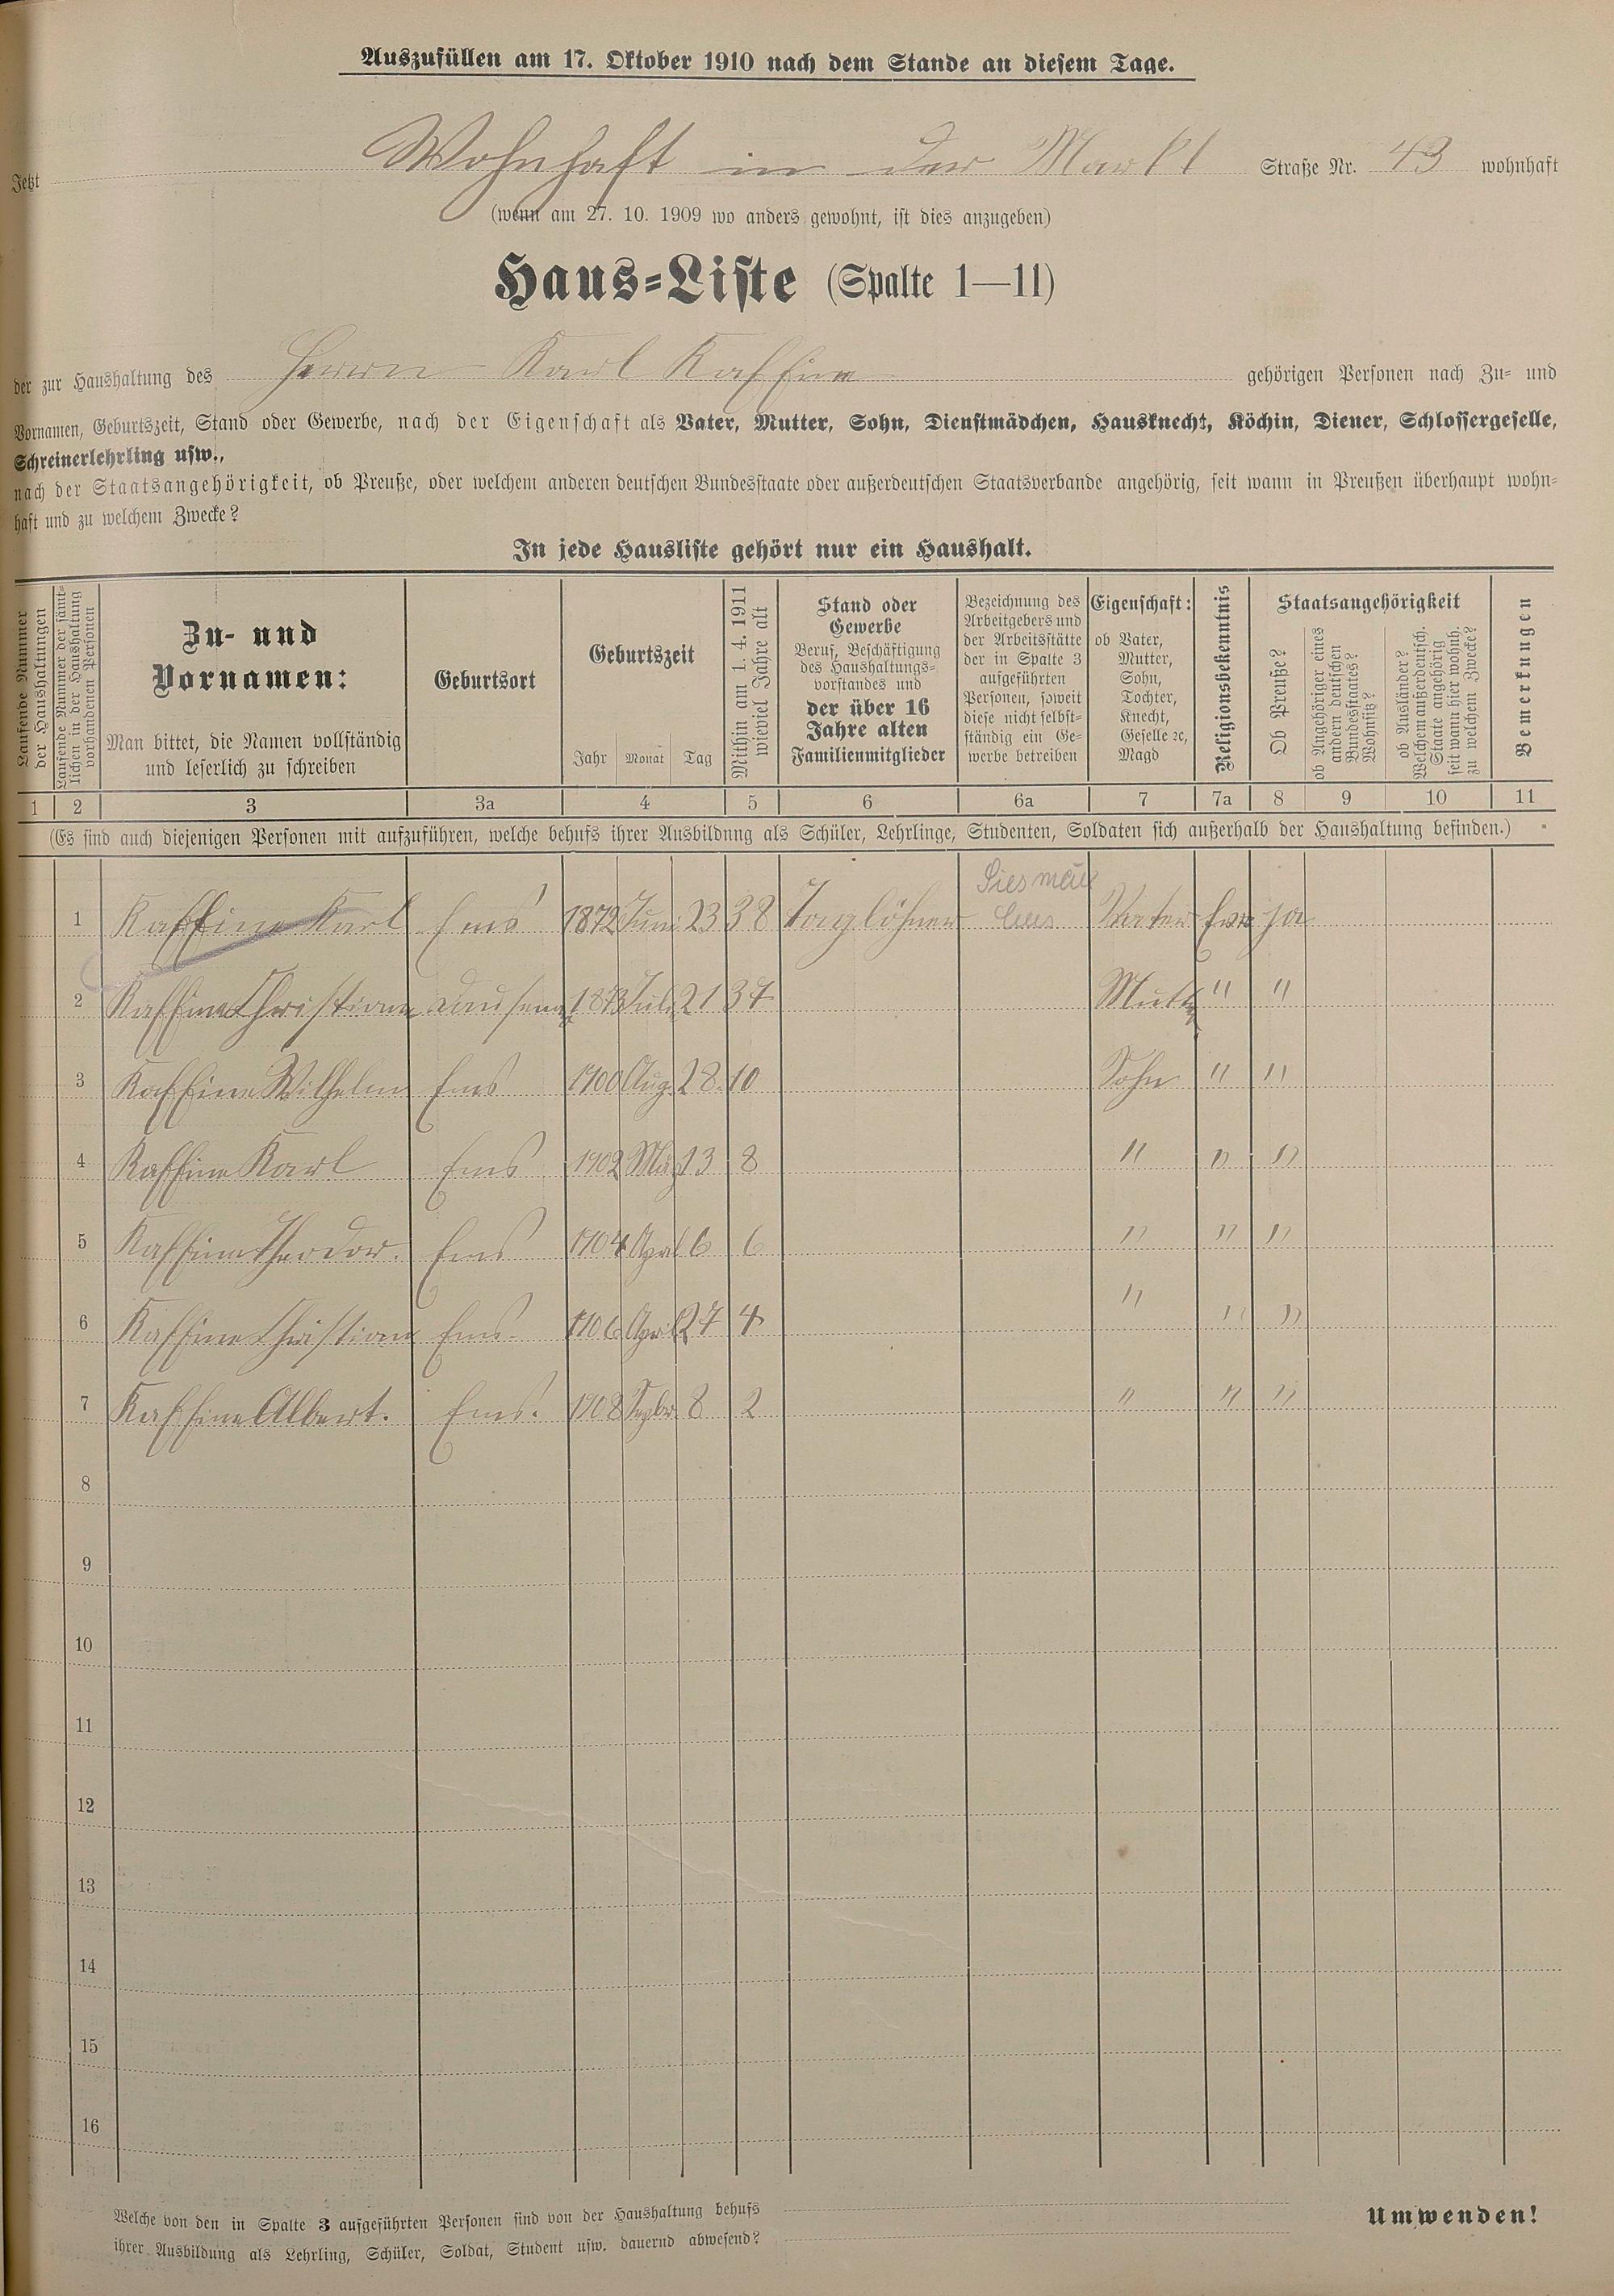 Auszufüllen am 17. Oktober 1910 nach dem Stande an diesem Tage.
Jetzt Wohnhaft in der Markt Straße Nr. 43 wohnhaft
(wenn am 27. 10. 1909 wo anders gewohnt, ist dies anzugeben)
Haus-Liste (Spalte 1—11)
der zur Haushaltung des Herrn Karl Kaffine gehörigen Personen nach Zu- und
Vornamen, Geburtszeit, Stand oder Gewerbe, nach der Eigenschaft als Vater, Mutter, Sohn, Dienstmädchen, Hausknecht, Köchin, Diener, Schlossergeselle,
Schreinerlehrling usw.,
nach der Staatsangehörigkeit, ob Preuße, oder welchem anderen deutschen Bundesstaate oder außerdeutschen Staatsverbande angehörig, seit wann in Preußen überhaupt wohn-
haft und zu welchem Zwecke?
In jede Hausliste gehört nur ein Haushalt.
Laufende Nummer
der Haushaltungen
Laufende Nummer der sämt-
lichen in der Haushaltung
vorhandenen Personen
Zu- und
Vornamen:
Man bittet, die Namen vollständig
und leserlich zu schreiben
Geburtsort
Geburtszeit
Jahr Monat Tag
Mithin am 1. 4. 1911
wieviel Jahre alt
Stand oder
Gewerbe
Beruf, Beschäftigung
des Haushaltungs-
vorstandes und
der über 16
Jahre alten
Familienmitglieder
Bezeichnung des
Arbeitgebers und
der Arbeitsstätte
der in Spalte 3
aufgeführten
Personen, soweit
diese nicht selbst-
ständig ein Ge-
werbe betreiben
Eigenschaft:
ob Vater,
Mutter,
Sohn,
Tochter,
Knecht,
Geselle ec,
Magd
Religionsbekenntnis
Staatsangehörigkeit
Ob Preuße?
ob Angehöriger eines
andern deutschen
Bundesstaates?
Wohnsitz?
ob Ausländer?
Welchem außerdeutsch.
Staate angehörig
seit wann hier wohnh.
zu welchem Zwecke?
Bemerkungen
1 2 3 3a 4 5 6 6a 7 7a 8 9 10 11
(Es sind auch diejenigen Personen mit aufzuführen, welche behufs ihrer Ausbildung als Schüler, Lehrlinge, Studenten, Soldaten sich außerhalb der Haushaltung befinden.)
1 Kaffine Karl Ems 1872 Juni 23 38 Taglöhner Vater Ev. ja
2 Kaffine Christiane Dausenau 1873 Juli 21 37 Mutter " "
3 Kaffine Wilhelm Ems 1900 Aug. 28. 10 Sohn " "
4 Kaffine Karl Ems 1902 März 13 8 " " "
5 Kaffine Theodor. Ems 1904 April 6 6 " " "
6 Kaffine Christian Ems. 1906 April 27 4 " " "
7 Kaffine Albert. Ems. 1908 Septbr. 8 2 " " "
8
9
10
11
12
13
14
15
16
Welche von den in Spalte 3 aufgeführten Personen sind von der Haushaltung behufs
ihrer Ausbildung als Lehrling, Schüler, Soldat, Student usw. dauernd abwesend?
Umwenden!